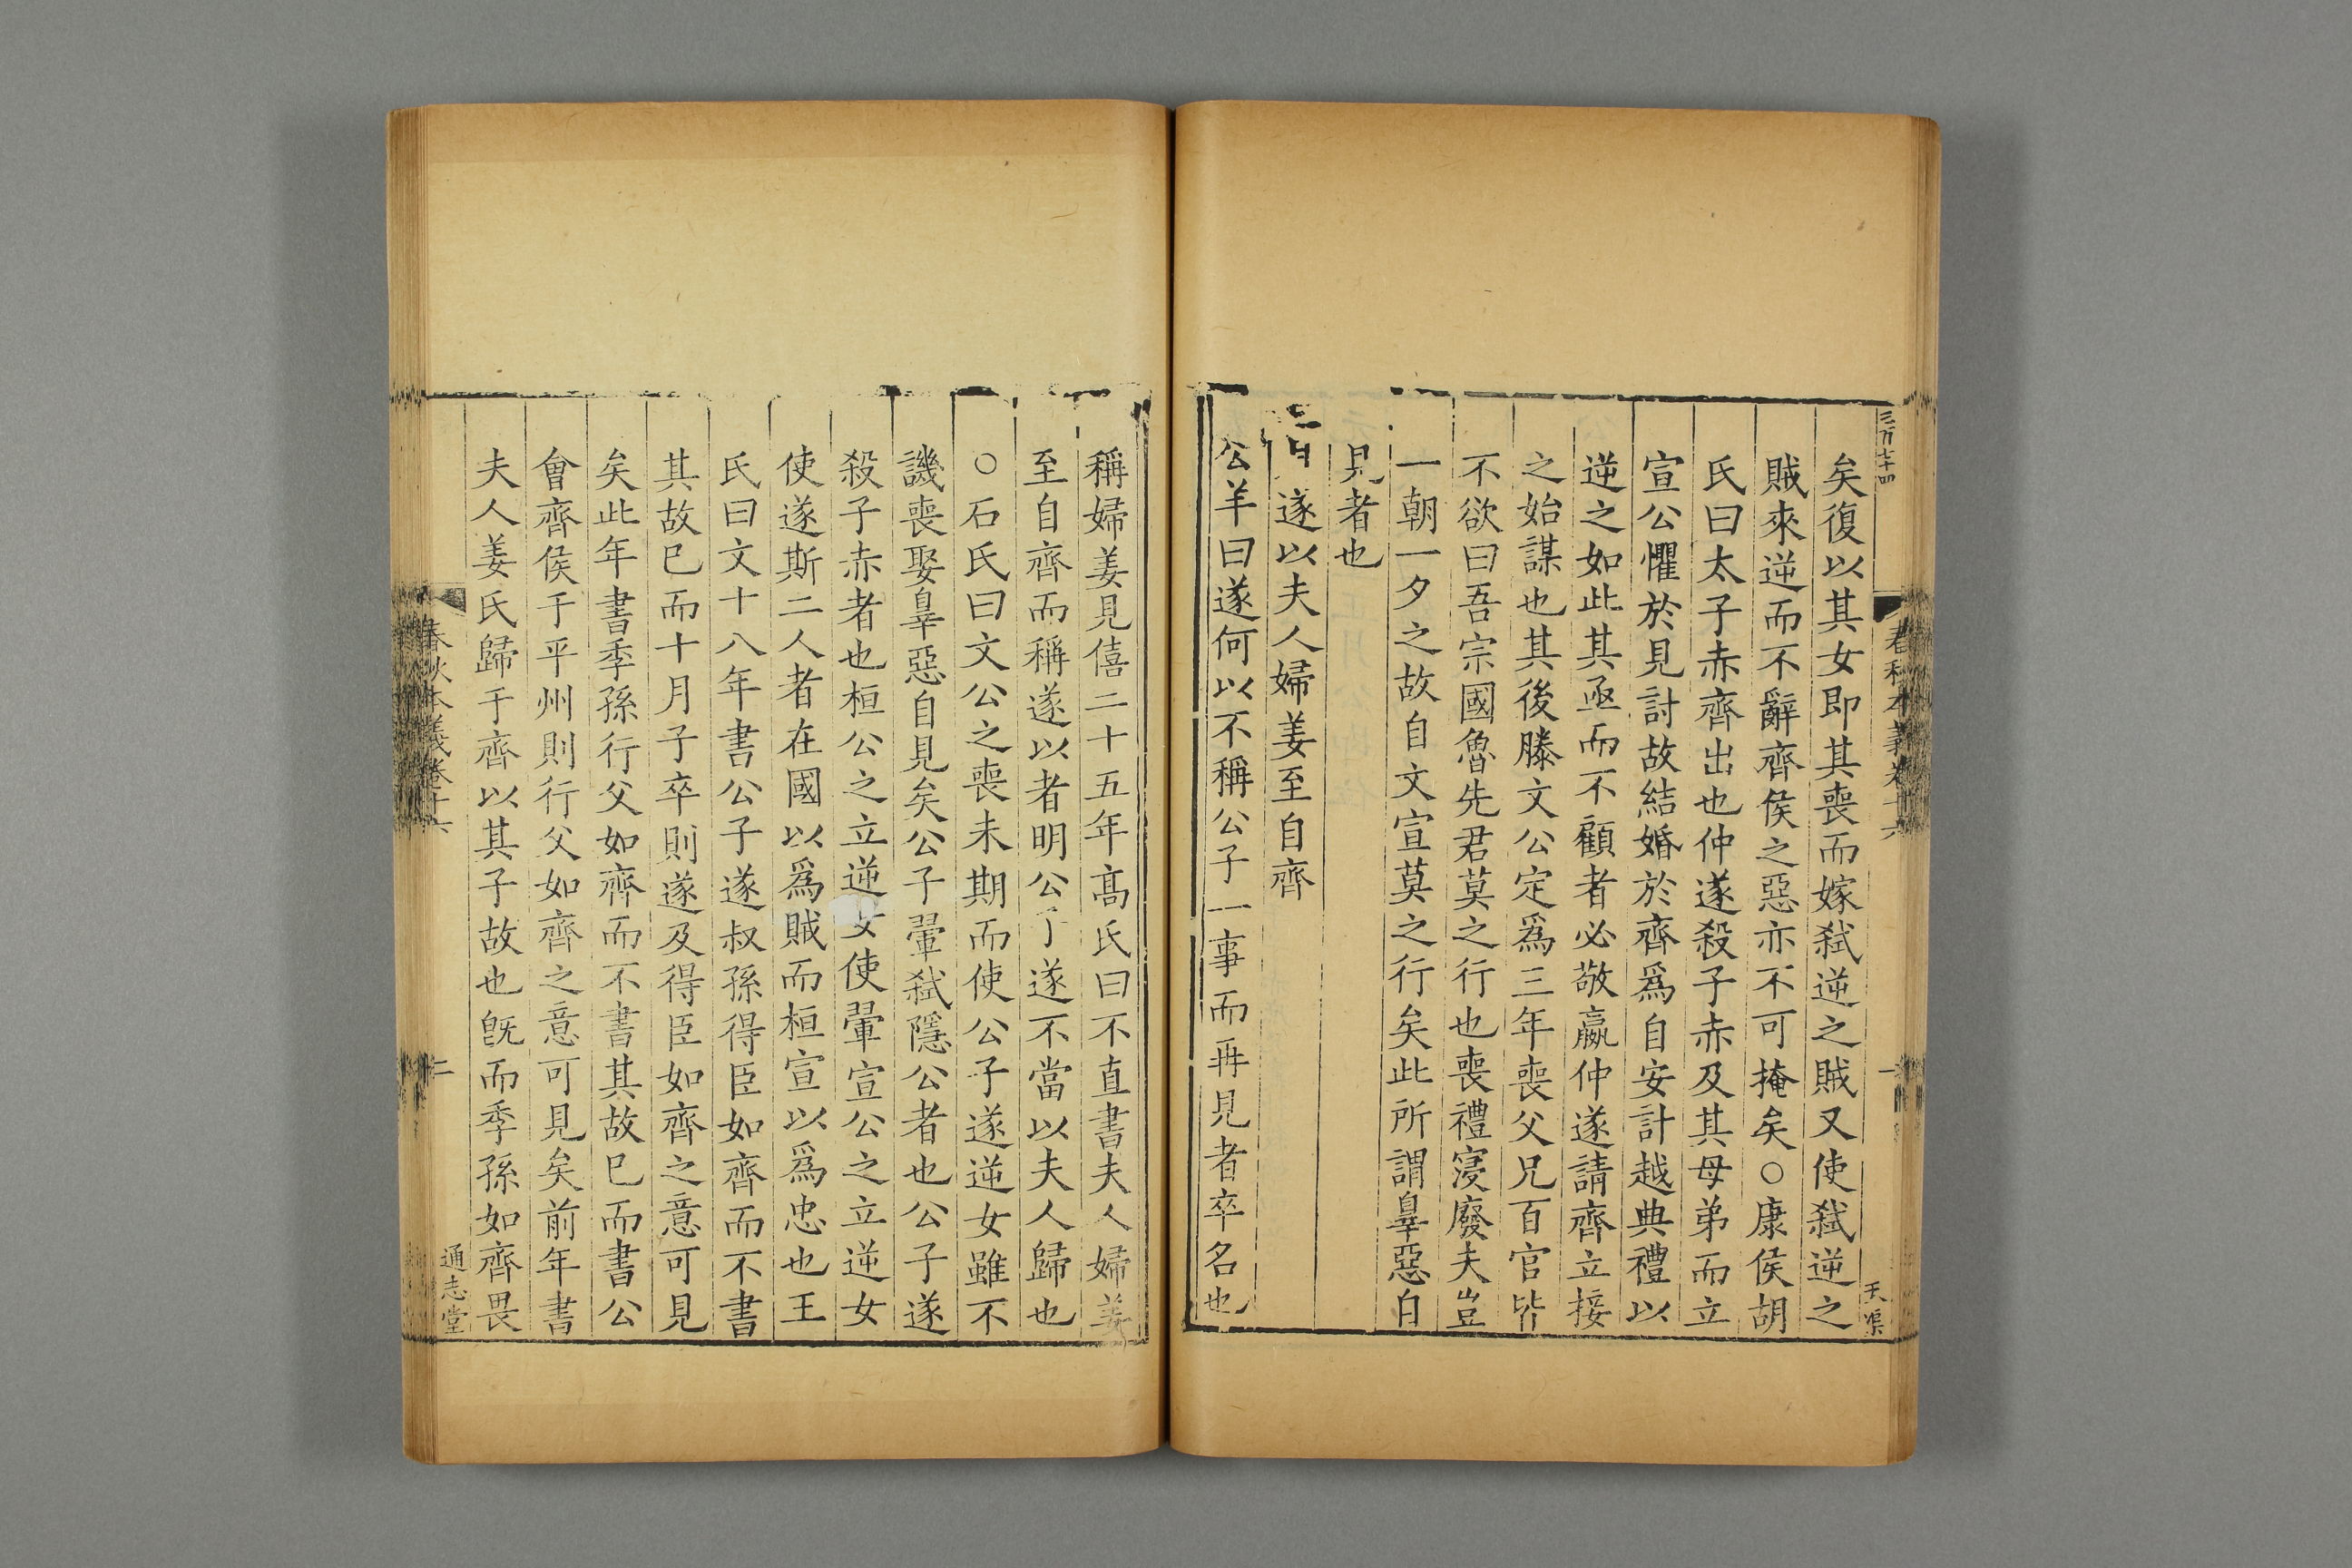 三百七十四
春秋本義卷十六
一
天渠
矣復以其女即其喪而嫁弑逆之賊又使弑逆之
賊來逆而不辭齊侯之惡亦不可掩矣○康侯胡
氏曰太子赤齊出也仲遂殺子赤及其母弟而立
宣公懼於見討故結婚於齊爲自安計越典禮以
逆之如此其亟而不顧者必敬嬴仲遂請齊立接
之始謀也其後滕文公定爲三年喪父兄百官皆
不欲曰吾宗國魯先君莫之行也喪禮寖廢夫豈
一朝一夕之故自文宣莫之行矣此所謂辠惡自
見者也
三月遂以夫人婦姜至自齊
公羊曰遂何以不稱公子一事而再見者卒名也
稱婦姜見僖二十五年髙氏曰不直書夫人婦姜
至自齊而稱遂以者明公子遂不當以夫人歸也
○石氏曰文公之喪未期而使公子遂逆女雖不
譏喪娶辠惡自見矣公子翬弑隱公者也公子遂
殺子赤者也桓公之立逆女使翬宣公之立逆女
使遂斯二人者在國以爲賊而桓宣以爲忠也王
氏曰文十八年書公子遂叔孫得臣如齊而不書
其故巳而十月子卒則遂及得臣如齊之意可見
矣此年書季孫行父如齊而不書其故巳而書公
會齊侯于平州則行父如齊之意可見矣前年書
夫人姜氏歸于齊以其子故也旣而季孫如齊畏
春秋本義卷十六
二
通志堂